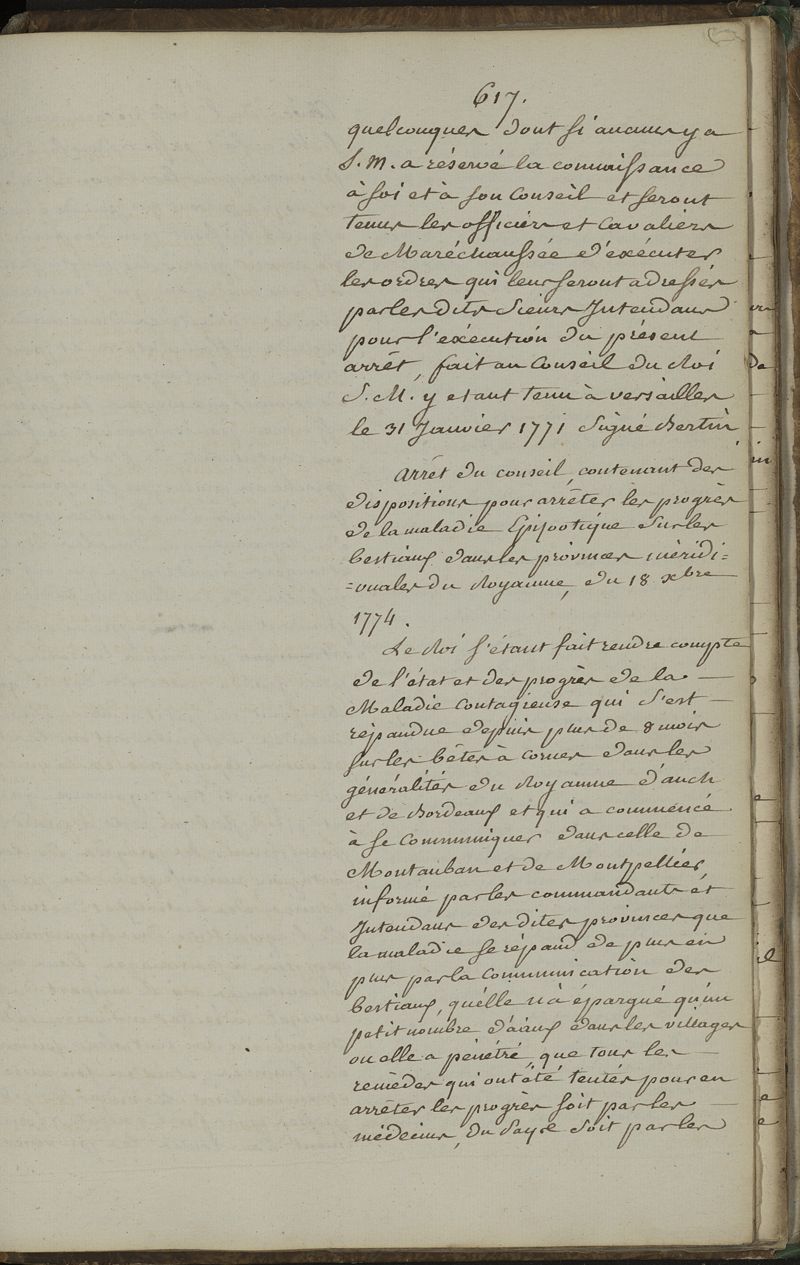 617.
quelconques dont si aucuns y a
S. M. a réservé la connaissance
à soi et à son Conseil et seront
tenus les officiers et Cavaliers
de Maréchaussée d'exécuter
les ordres qui leur seront adressés
par les dits Sieurs Intendans
pour l'exécution du présent
arrêt, fait au Conseil du Roi
S. M. y etant tenu à versailles
le 31 Janvier 1771 Signé Bertin
Arrêt du conseil, contenant des
dispositions pour arrêter les progrès
de la maladie Epizootique sur les
bestiaux dans les provinces méridi=
=onales du Royaume, du 18 xbre
1774.
Le Roi s'étant fait rendre compte
de l'état et des progrès de la
Maladie Contagieuse qui s'est
répandue depuis plus de 8 mois
sur les bêtes à cornes dans les
généralités du Royaume d'auch
et de Bordeaux et qui a commencé
à se Communiquer dans celle de
Montauban et de Montpellier,
informé par les commandants et
Intendans des dites provinces que
la maladie se répand de plus en
plus par la Communication des
bestiaux, qu'elle n'a épargné qu'un
petit nombre dans les villages
ou elle a pénétré, que tous les
remèdes qui ont été tentés pour en
arrêter les progrès soit par les
médecins, du Pays soit par les